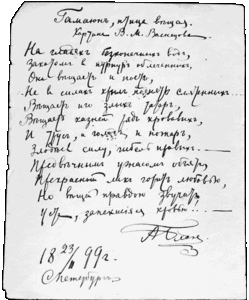 Гамаюн, птица вещая.
Картина В. М. Васнецова
На гладях безконечных вод,
Закатом в пурпур облеченных,
Она вещает и поет,
Не в силах крыл поднять смятенных.
Вещает иго злых татар,
Вещает казней ряд кровавых,
И трус, и голод, и пожар,
Злодеев силу, гибель правых...
Предвечным ужасом объят,
Прекрасный лик горит любовью,
Но вещей правдою звучат
Уста, запекшиеся кровью!...
А. Блок
18 23/II 99 г.
С.Петербург